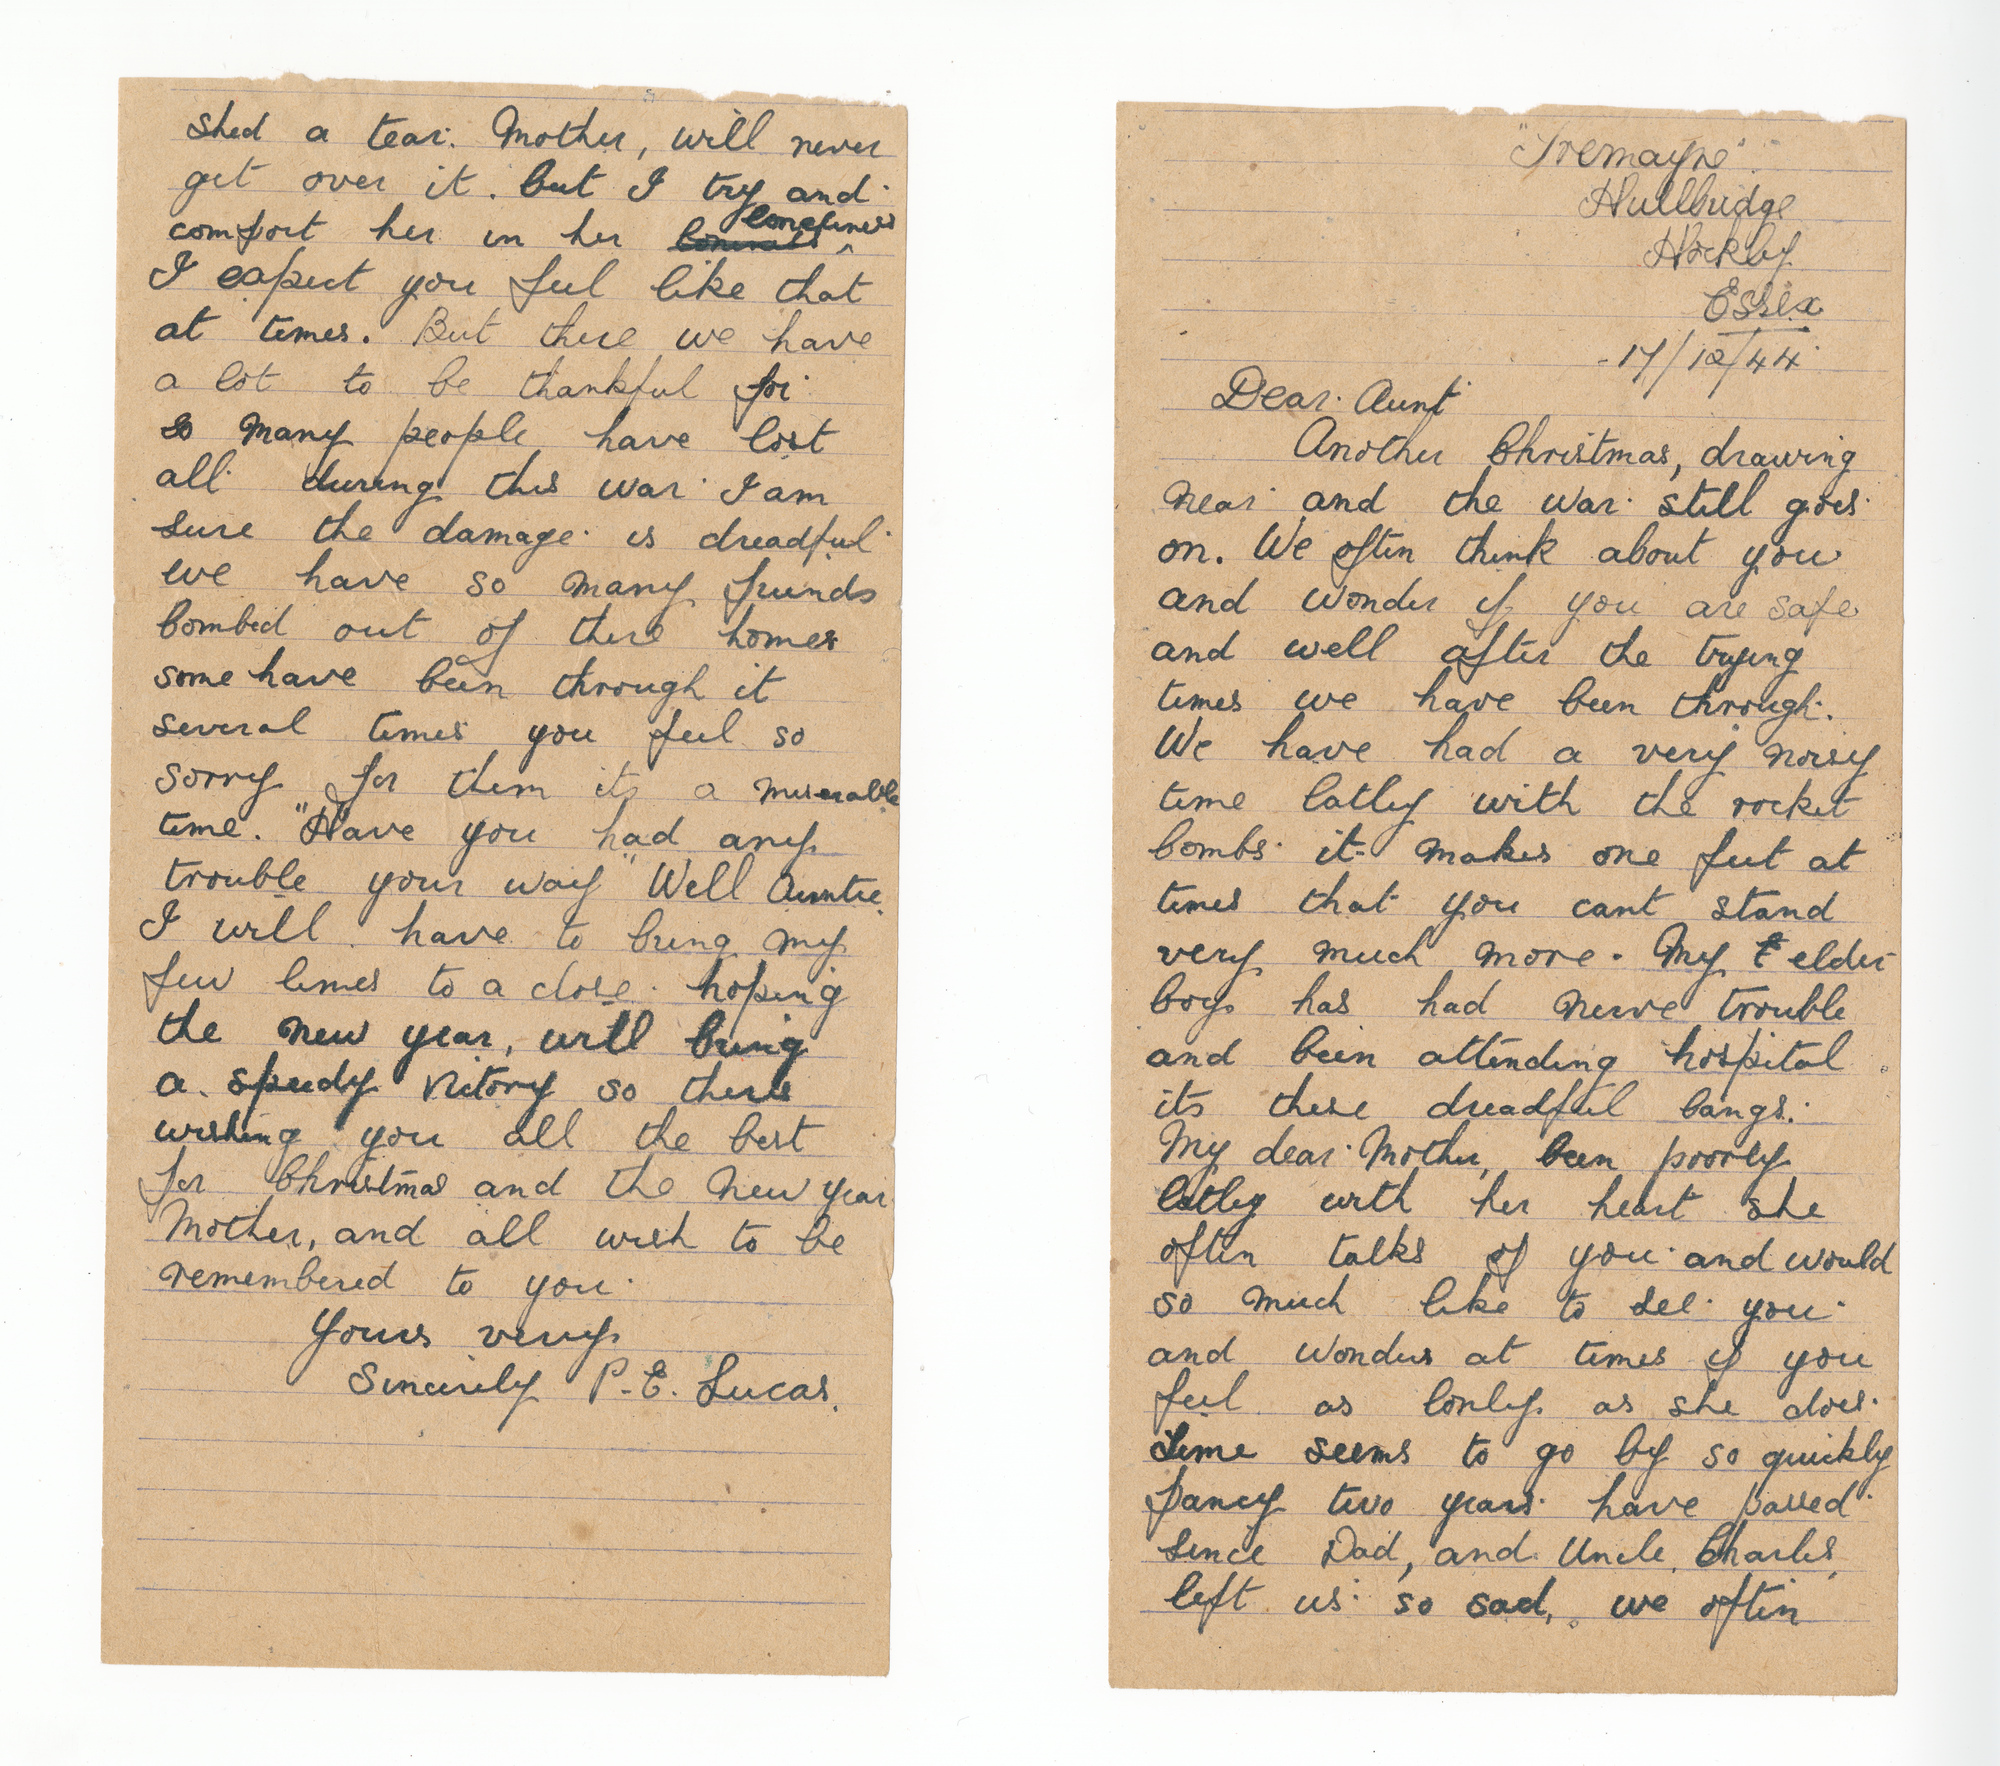 "Tremayne"
Hullbridge
Hockley
Essex
-17/12/44
Dear Aunt
Another Christmas, drawing
near and the war still goes
on. We often think about you
and wonder if you are safe
and well after the trying
times we have been through.
We have had a very noisy
time latley with the rocket
bombs it makes one feet at
times that you cant stand
very much more. My elder
boy has had nerve trouble
and been attending hospital.
its these dreadful bangs.
My dear Mother, been poorly
latley with her heart she
often talks of you and would
so much like to see you
and wonders at times if you
feel as lonley as she does.
Time seems to go by so quickly
fancy two years have passed
since Dad, and Uncle, Charles,
left us so sad, we often
shed a tear. Mother, will never
get over it. but I try and
comfort her in her loneliness
I expect you feel like that
at times. But there we have
a lot to be thankful for
so many people have lost
all during this war I am
sure the damage is dreadful
we have so many friends
bombed out of there homes
some have been through it
several times you feel so
sorry for them its a miserable
time. "Have you had any
trouble your way" Well Auntie.
I will have to bring my
few lines to a close. hoping
the new year, will bring
a speedy Vitory so there
wishing you all the best
for Christmas and the New year
Mother, and all wish to be
remembered to you.
Yours very
Sincirely P.E. Lucas.